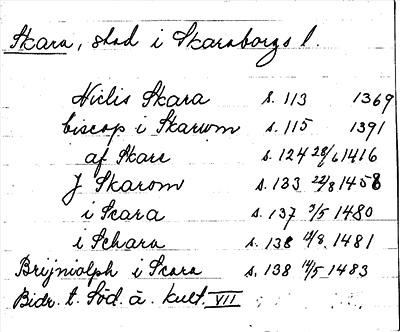 Skara, stad i Skaraborgs l.
Niclis Skara s. 113 1369
biscop i Skarwm s. 115 1391
af Skare s. 124 28/6 1416
J Skarom s. 133 22/8 1458
i Scara s. 137 3/5 1480
i Schara s. 138 12/8 1481
Brijniolph i Scara s. 138 14/5 1483
Bidr. t. Söd. å. kult. VII